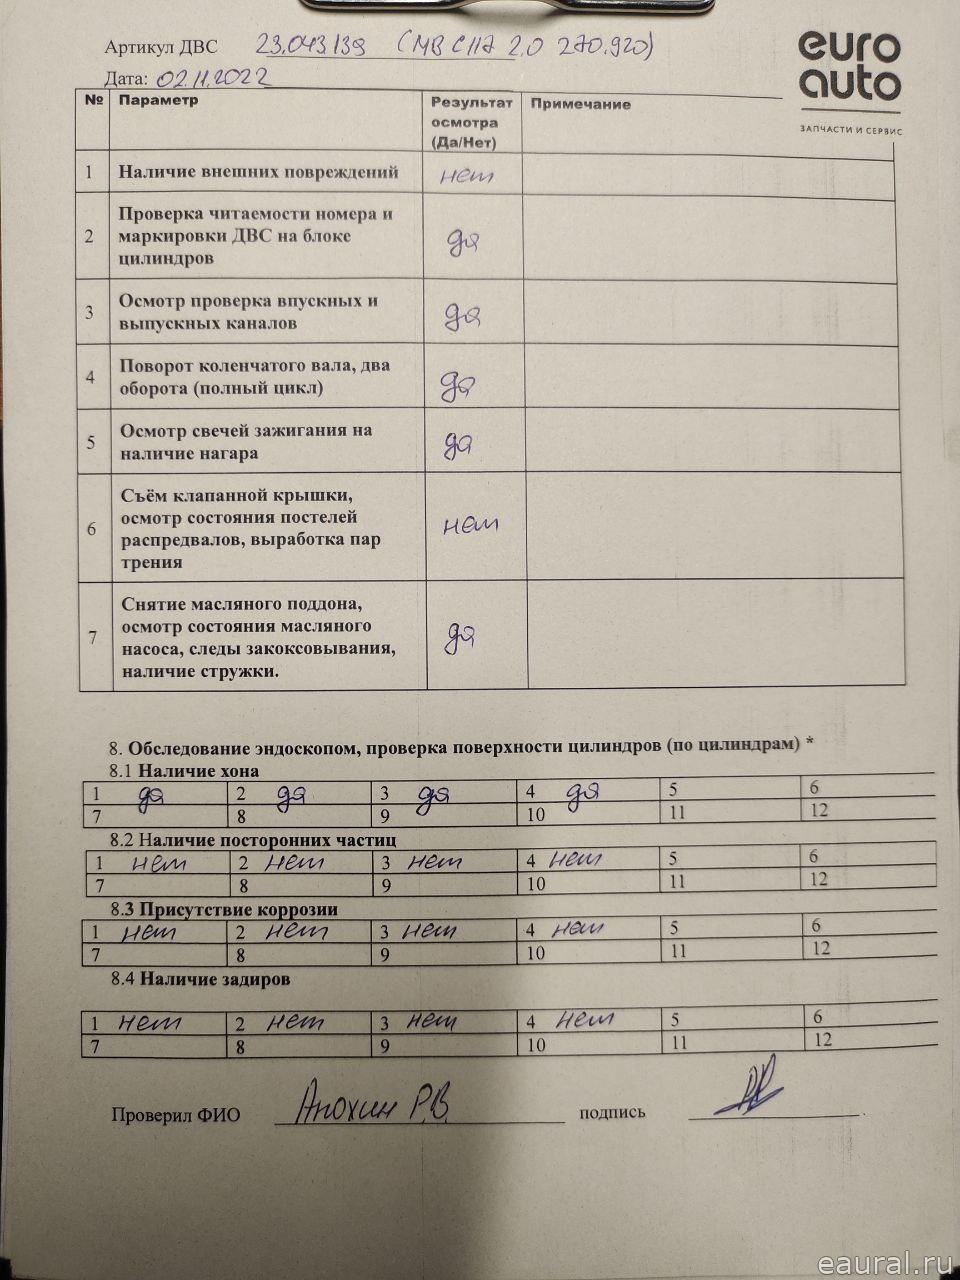 Артикул ДВС 23.043139 (МВ С117 2.0 270.920)
Дата: 02.11.2022
euro
auto
ЗАПЧАСТИ И СЕРВИС
№ Параметр Результат осмотра (Да/Нет) Примечание
1 Наличие внешних повреждений нет
2 Проверка читаемости номера и
маркировки ДВС на блоке да
цилиндров
3 Осмотр проверка впускных и
выпускных каналов да
4 Поворот коленчатого вала, два
оборота (полный цикл) да
5 Осмотр свечей зажигания на
наличие нагара да
6 Съём клапанной крышки,
осмотр состояния постелей нет
распредвалов, выработка пар
трения
7 Снятие масляного поддона,
осмотр состояния масляного да
насоса, следы закоксовывания,
наличие стружки.
8. Обследование эндоскопом, проверка поверхности цилиндров (по цилиндрам) *
8.1 Наличие хона
1 да 2 да 3 да 4 да 5 6
7 8 9 10 11 12
8.2 Наличие посторонних частиц
1 нет 2 нет 3 нет 4 нет 5 6
7 8 9 10 11 12
8.3 Присутствие коррозии
1 нет 2 нет 3 нет 4 нет 5 6
7 8 9 10 11 12
8.4 Наличие задиров
1 нет 2 нет 3 нет 4 нет 5 6
7 8 9 10 11 12
Проверил ФИО Анохин Р.В. подпись
eaural.ru